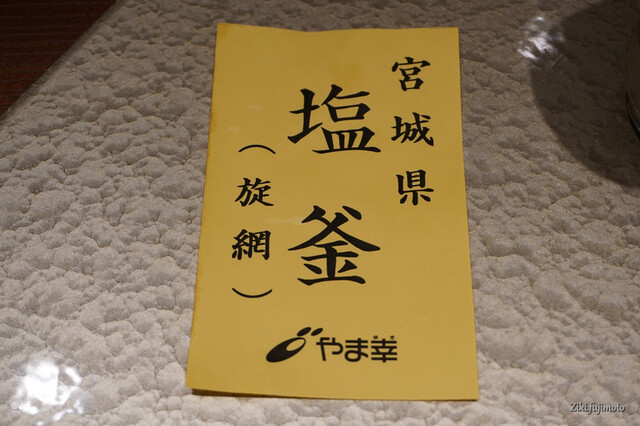 宮城県
塩釜
（旋網）
やま幸
Ziki.fujimoto